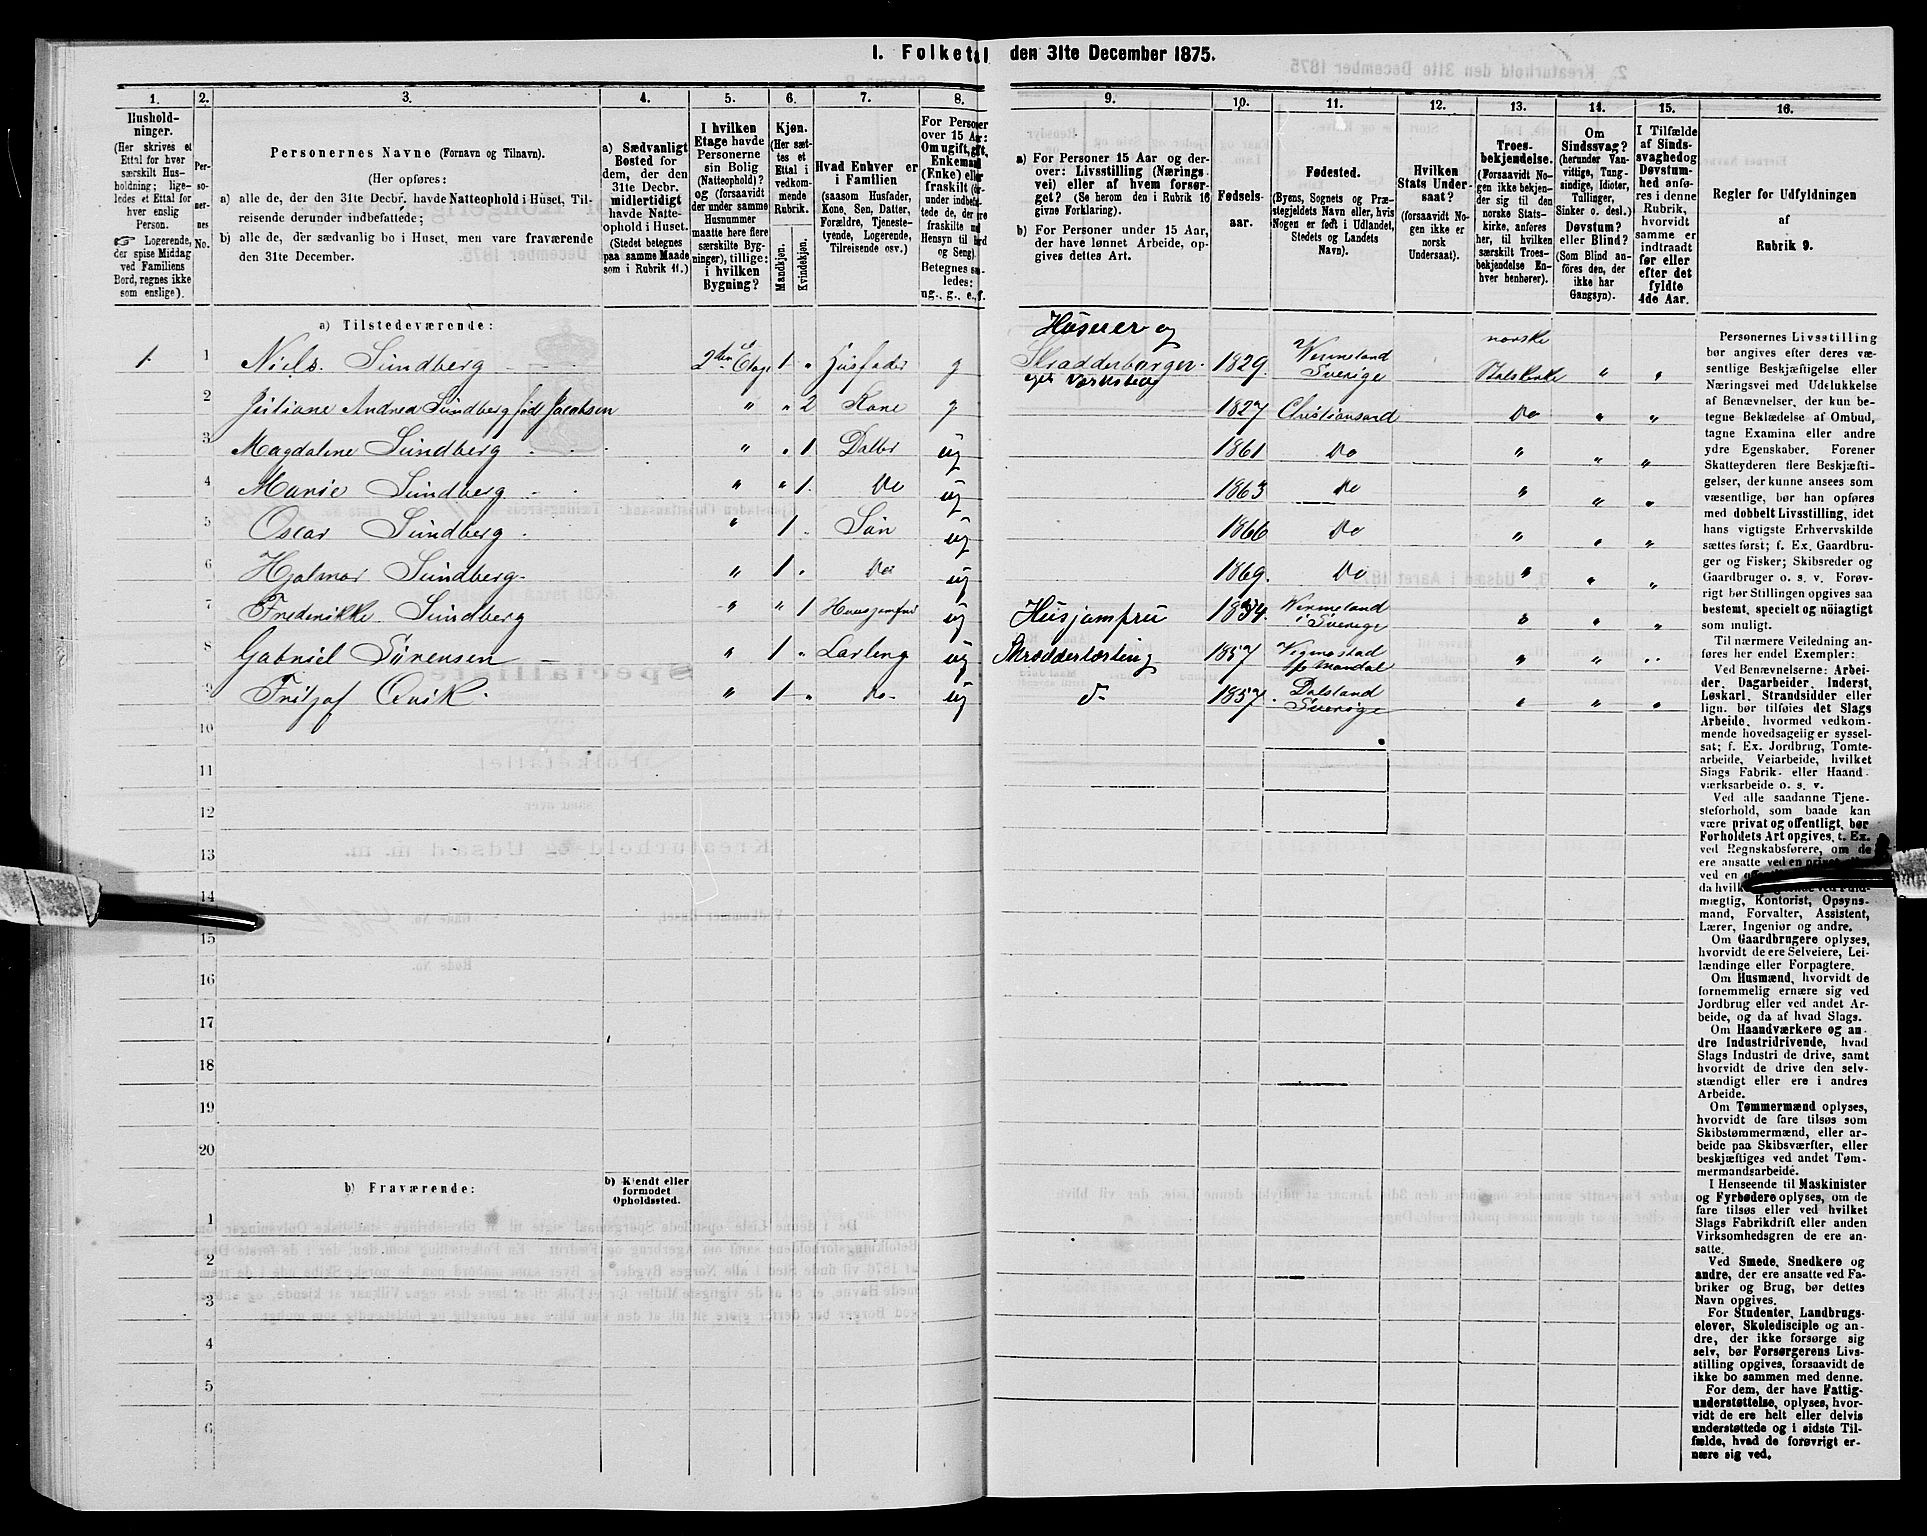 1. Folketal den 31te December 1875.
1.
Husholdninger.
(Her skrives et
Ettal for hver
særskilt Husholdning; ligeledes
et Ettal for
hver enslig
Person.
☞ Logerende,
der spise Middag
ved Familiens
Bord, regnes ikke
som enslige).
2.
Personernes
No.
3.
Personernes Navne (Fornavn og Tilnavn).
(Her opføres:
a) alle de, der den 31te Decbr. havde Natteophold i Huset, Tilreisende
derunder indbefattede;
b) alle de, der sædvanlig bo i Huset, men vare fraværende
den 31te December.
4.
a) Sædvanligt
Bosted for
dem, der den
31te Decbr.
midlertidigt
havde Natteophold
i Huset.
(Stedet betegnes
paa samme Maade
som i Rubrik 11.)
5.
I hvilken
Etage havde
Personerne
sin Bolig
(Natteophold)?
og (forsaavidt
der under samme
Husnummer
maatte høre flere
særskilte Bygninger),
tillige:
i hvilken
Bygning?
6.
Kjøn.
(Her sættes
et
Ettal i
vedkommende
Rubrik.
Mandkjøn.
Kvindekjøn.
7.
Hvad Enhver er
i Familien
(saasom Husfader,
Kone, Søn, Datter,
Forældre, Tjenestetyende,
Logerende,
Tilreisende osv.)
8.
For Personer
over 15 Aar:
Om ugift, gift,
Enkemand
(Enke) eller
fraskilt
9.
a) For Personer 15 Aar og derover:
Livsstilling (Næringsvei)
eller af hvem forsørget?
(Se herom den i Rubrik 16
givne Forklaring).
b) For Personer under 15 Aar,
der have lønnet Arbeide, opgives
dettes Art.
10.
Fødselsaar.
11.
Fødested.
(Byens, Sognets og Præstegjeldets
Navn eller, hvis
Nogen er født i Udlandet,
Stedets og Landets
Navn).
12.
Hvilken
Stats Undersaat?
(forsaavidt Nogen
ikke er
norsk
Undersaat).
13.
Troesbekjendelse.
(Forsaavidt Nogen
ikke bekjender
sig til den
norske Statskirke,
anføres
her, til hvilken
særskilt Troesbekjendelse
Enhver
henhører).
14.
Om
Sindssvag?
(herunder Vanvittige,
Tungsindige,
Idioter,
Tullinger,
Sinker o. desl.)
Døvstum?
eller Blind?
(Som Blind anføres
den, der
ikke har
Gangsyn).
15.
I Tilfælde
af Sindssvaghed
og
Døvstumhed
anføres
i denne
Rubrik,
hvorvidt
samme er
indtraadt
før eller
efter det
fyldte
4de Aar.
16.
Regler for Udfyldningen
af
Rubrik 9.
a) Tilstedeværende:
1 1 Niels Sundberg 2den Etage 1 " Husfader g Huseier og Skrædderborger eget Værksted 1829. Vermeland Sverige norske Statskirke " "
2 Juliane Andrea Sundberg født Jacobsen " " 2 Kone g 1827 Christianssand Do " "
3 Magdalene Sundberg " " 1 Datter ug 1861 Do " " "
4 Marie Sundberg " " 1. Do ug 1863 Do " " "
5 Oscar Sundberg " 1 Søn ug 1866 Do " " "
6 Hjalmar Sundberg " 1 " Do ug 1869. Do " " "
7 Frederikke Sundberg " " 1 Huusjomfru ug Husjomfru 1854. Vermeland i Sverige " " "
8 Gabriel Sørensen " 1 " Lærling ug Skrædderlærling 1857 Vigmostad p Mandal " " "
9 Fritjof Qvik " 1 " do ug do 1857. Dalsland Sverige " " "
10
11
12
13
14
15
16
17
18
19
20
b) Fraværende:
b) Kjendt eller
formodet
Opholdssted.
1
2
3
4
5
6
Personernes Livsstilling
bør angives efter deres væsentlige
Beskjæftigelse eller
Næringsvei med Udelukkelse
af Benævnelser, der kun betegne
Beklædelse af Ombud,
tagne Examina eller andre
ydre Egenskaber. Forener
Skatteyderen flere Beskjæftigelser,
der kunne ansees som
væsentlige, bør han opføres
med dobbelt Livsstilling, idet
hans vigtigste Erhvervskilde
sættes først; f. Ex. Gaardbruger
og Fisker; Skibsreder og
Gaardbruger o. s. v. Forøvrigt
bør Stillingen opgives saa
bestemt, specielt og nöiagtigt
som muligt.
Til nærmere Veiledning anføres
her endel Exempler:
Ved Benævnelserne: Arbeider,
Dagarbeider, Inderst,
Løskarl, Strandsidder eller
lign. bør tilføies det Slags
Arbeide, hvormed vedkommende
hovedsagelig er sysselsat;
f. Ex. Jordbrug, Tomtearbeide,
Veiarbeide, hvilket
Slags Fabrik- eller Haandværksarbeide
o. s. v.
Ved alle saadanne Tjenesteforhold,
som baade kan
være privat og offentligt, bør
Forholdets Art opgives, t. Ex.
ved Regnskabsførere, om de
ere ansatte ved en
mægtig, Kontorist, Opsynsmand,
Forvalter, Assistent,
Lærer, Ingeniør og andre.
Om Gaardbrugere oplyses,
hvorvidt de ere Selveiere, Leilændinge
eller Forpagtere.
Om Husmænd, hvorvidt de
fornemmelig ernære sig ved
Jordbrug eller ved andet Arbeide,
og da af hvad Slags.
Om Haandværkere og andre
Industridrivende, hvad
Slags Industri de drive, samt
hvorvidt de drive den selvstændigt
eller ere i andres
Arbeide.
Om Tømmermænd oplyses,
hvorvidt de fare tilsøs som
Skibstømmermænd, eller arbeide
paa Skibsværfter, eller
beskjæftiges ved andet Tømmermandsarbeide.
I Henseende til Maskinister
og Fyrbødere oplyses, om de
fare tilsøs eller ved hvilket
Slags Fabrikdrift eller anden
Virksomhedsgren de ere ansatte.
Ved Smede, Snedkere og
andre, der ere ansatte ved Fabriker
og Brug, bør dettes
Navn opgives.
For Studenter, Landbrugselever,
Skoledisciple og andre,
der ikke forsørge sig
selv, bør Forsørgerens Livsstilling
opgives, forsaavidt de
ikke bo sammen med denne.
For dem, der have Fattigunderstøttelse,
oplyses, hvorvidt
de ere helt eller delvis
understøttede og i sidste Tilfælde,
hvad de forøvrigt ernære
sig ved.